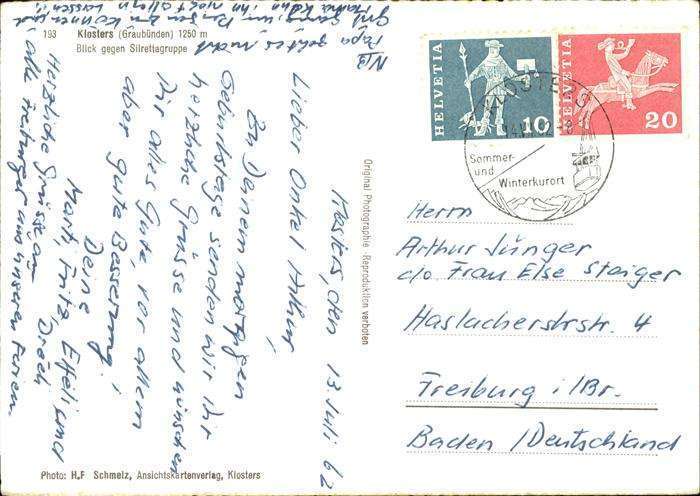 193 Klosters (Graubünden) 1250 m
Blick gegen Silvrettagruppe
HELVETIA 10
HELVETIA 20
KLOSTERS
Sommer-
und
Winterkurort
Original Photographie - Reproduktion verboten
Klosters, den 13. Juli 62
Lieber Onkel Arthur,
Zu Deinem morgigen
Geburtstage senden wir Dir
herzliche Grüsse und wünschen
Dir alles Gute, vor allem
aber gute Besserung!
Deine
Marti, Fritz, Effeli und
Herzliche Grüsse an
alle Freiburger aus unseren Ferien
NB
Papa geht es nicht
Herrn
Arthur Jünger
c/o. Frau Else Staiger
Haslacherstrstr. 4
Freiburg i/Br.
Baden / Deutschland
Photo: H.F Schmelz, Ansichtskartenverlag, Klosters